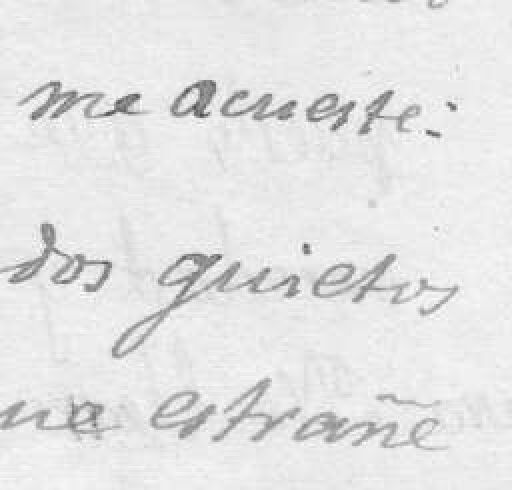 me acueste:
dos quietos
ua estrañe